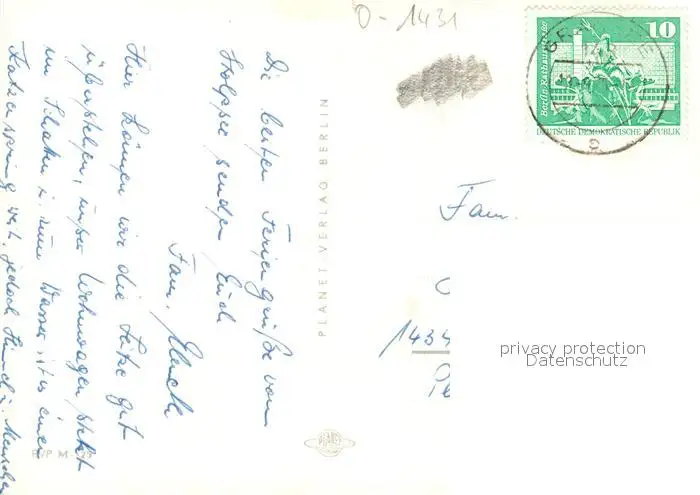 O-1431
Die besten Feriengrüße vom
Stolpsee sendet Euch
Fam.
Hier können wir die Hitze gut
aushalten, unser Wohnwagen steht
im Schatten u. zum Wasser ist es einen
Katzensprung weit, jedoch Hund u. Menschen
PLANET VERLAG BERLIN
PLANET
10
Berlin, Rathausstraße
DEUTSCHE DEMOKRATISCHE REPUBLIK
Fam.
1434
privacy protection
Datenschutz